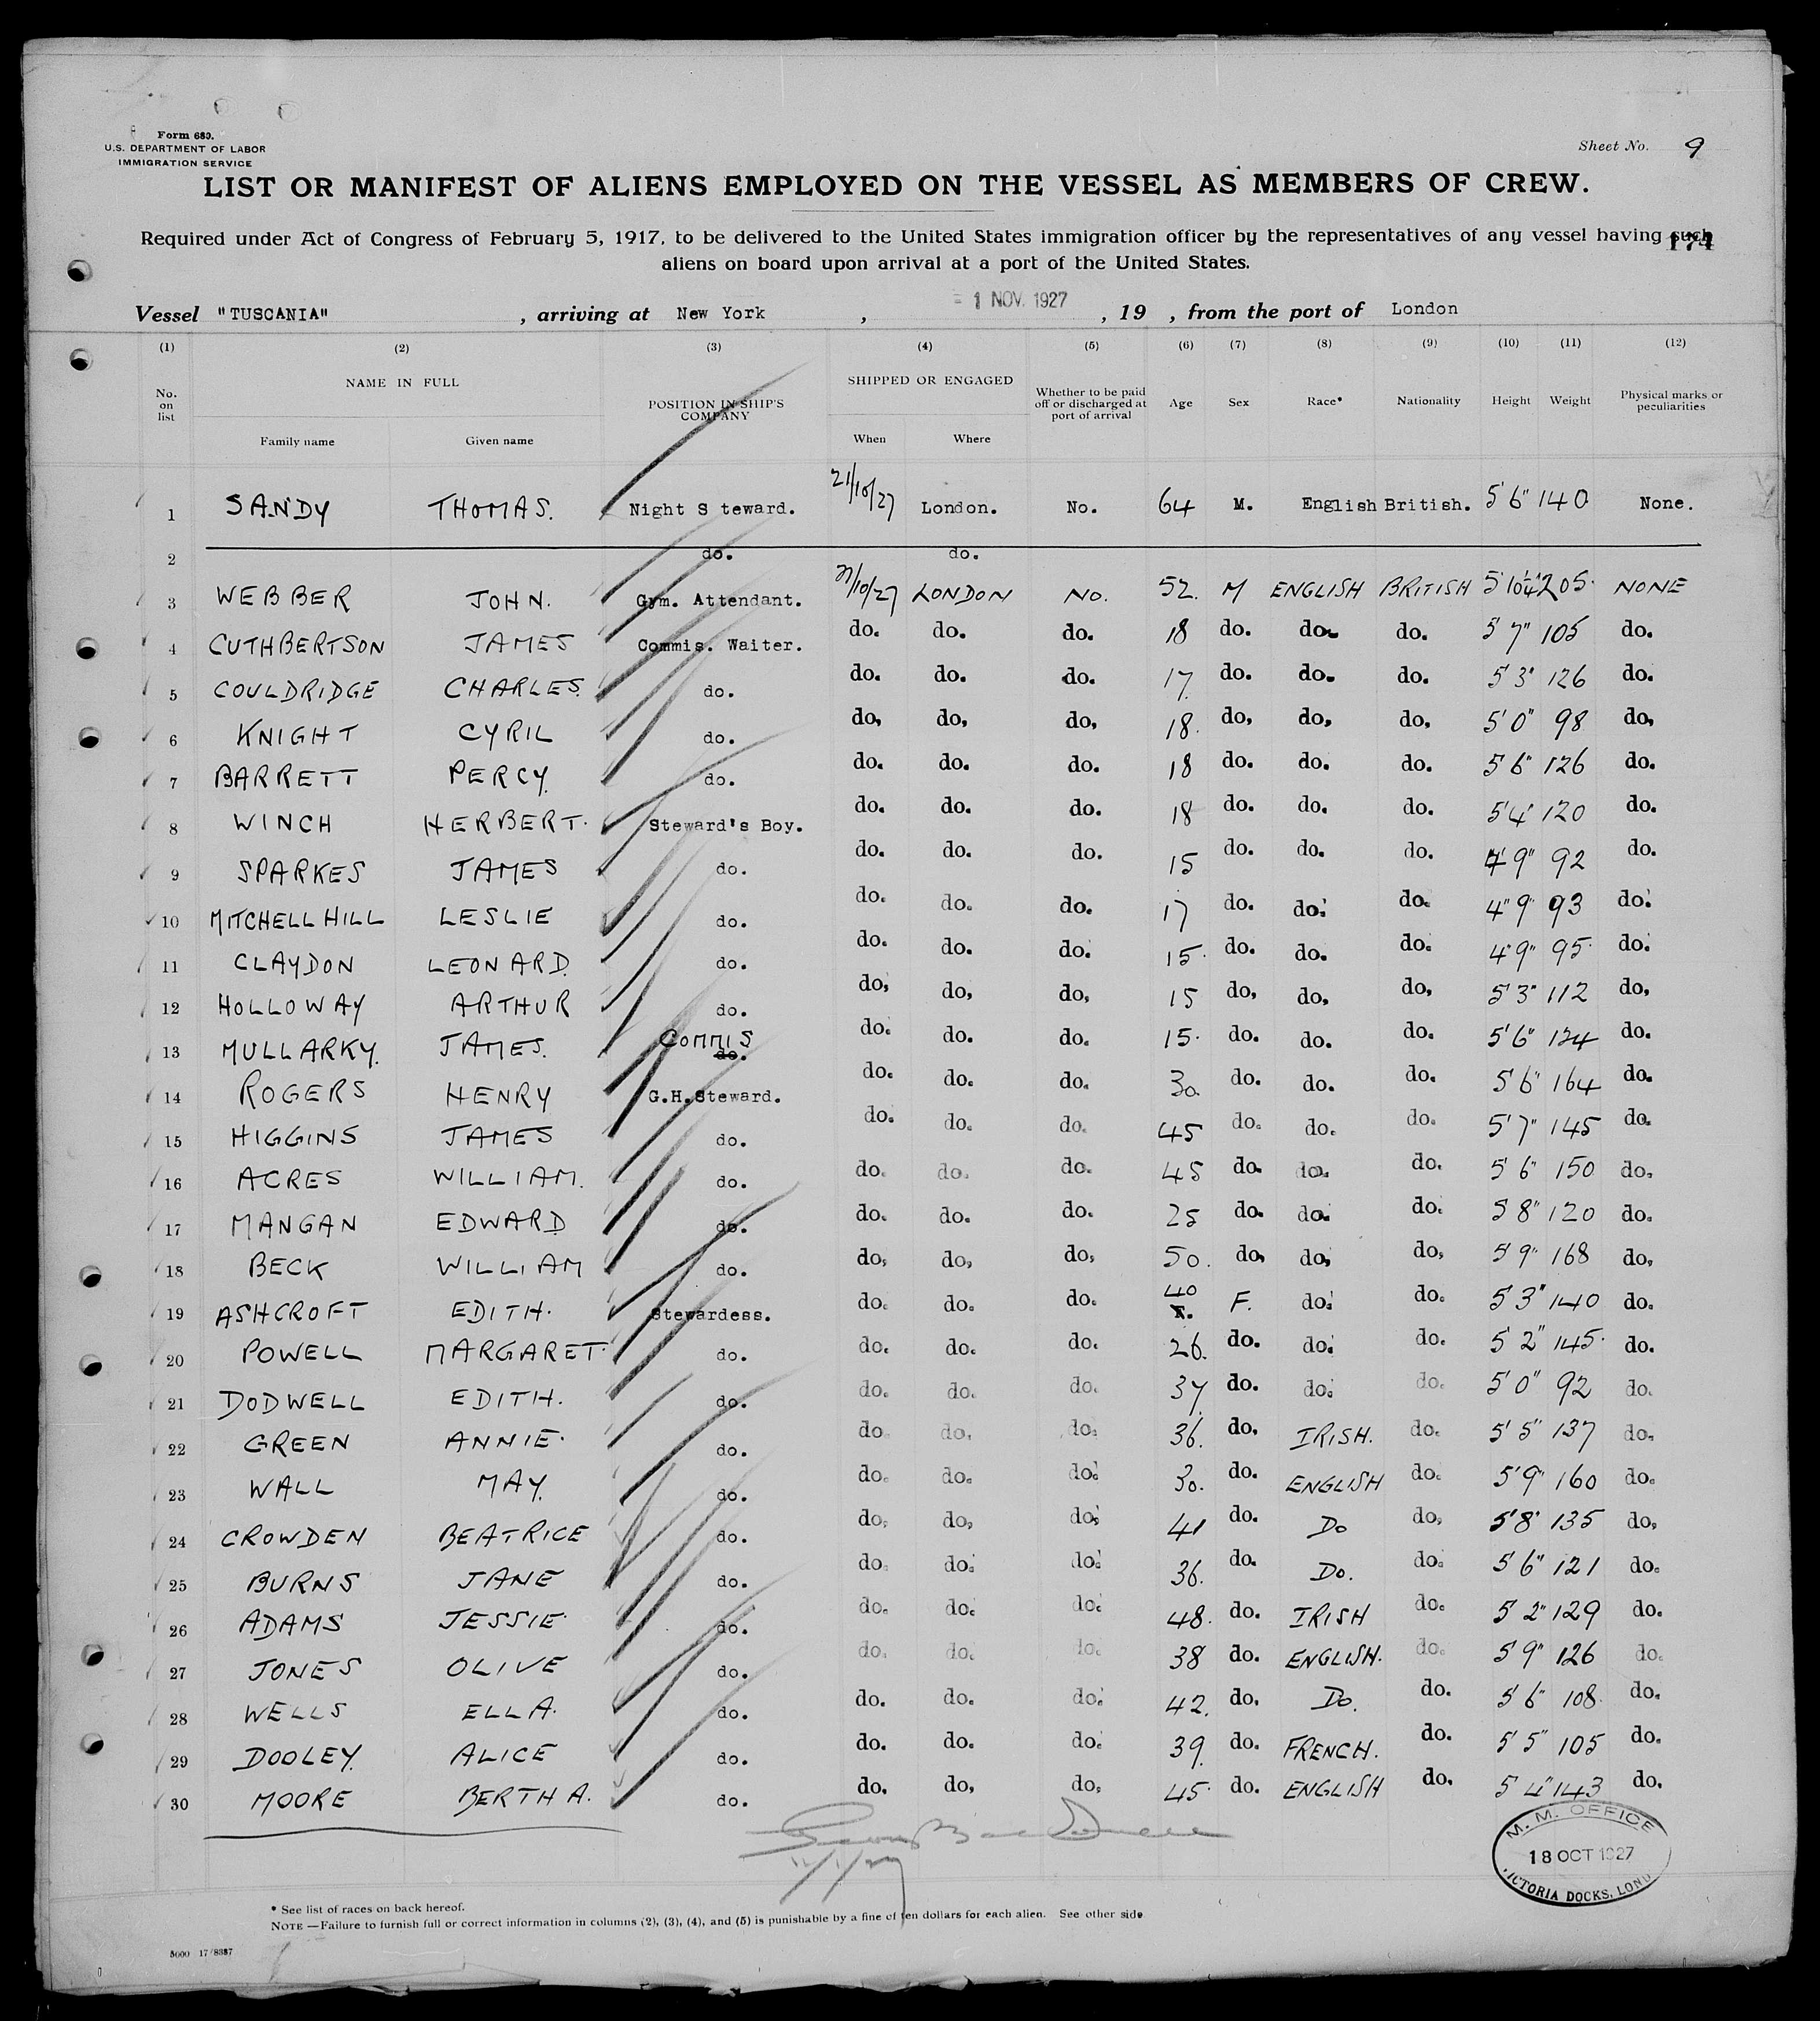 Form 680.
U.S. DEPARTMENT OF LABOR
IMMIGRATION SERVICE
Sheet No. 9
LIST OR MANIFEST OF ALIENS EMPLOYED ON THE VESSEL AS MEMBERS OF CREW.
Required under Act of Congress of February 5, 1917, to be delivered to the United States immigration officer by the representatives of any vessel having such
aliens on board upon arrival at a port of the United States.
Vessel "TUSCANIA" , arriving at New York , 1 NOV. 1927 , 19 , from the port of London
(1) (2) (3) (4) (5) (6) (7) (8) (9) (10) (11) (12)
No. on list NAME IN FULL POSITION IN SHIP'S COMPANY SHIPPED OR ENGAGED Whether to be paid off or discharged at port of arrival Age Sex Race* Nationality Height Weight Physical marks or peculiarities
Family name Given name When Where
1 SANDY THOMAS. Night S teward. 21/10/27 London. No. 64 M. English British. 5'6" 140 None.
2 do. do.
3 WEBBER JOHN. Gym. Attendant. 21/10/27 LONDON NO. 52. M ENGLISH BRITISH 5'10¼" 205. NONE
4 CUTHBERTSON JAMES Commis. Waiter. do. do. do. 18 do. do. do. 5'7" 105 do.
5 COULDRIDGE CHARLES. do. do. do. do. 17. do. do. do. 5'3" 126 do.
6 KNIGHT CYRIL do. do, do, do, 18. do, do, do, 5'0" 98 do,
7 BARRETT PERCY. do. do. do. do. 18 do. do. do. 5'6" 126 do.
8 WINCH HERBERT. Steward's Boy. do. do. do. 18 do. do. do. 5'4' 120 do.
9 SPARKES JAMES do. do. do. do. 15 do. do. do. 4'9" 92 do.
10 MITCHELL HILL LESLIE do. do. do. do. 17 do. do. do. 4"9" 93 do.
11 CLAYDON LEONARD. do. do. do. do. 15. do. do. do. 4'9" 95. do.
12 HOLLOWAY ARTHUR do. do, do, do, 15 do, do, do, 5'3" 112 do,
13 MULLARKY. JAMES. COMMIS do. do. do. do. 15. do. do. do. 5'6" 124 do.
14 ROGERS HENRY G.H.Steward. do. do. do. 30. do. do. do. 5'6" 164 do.
15 HIGGINS JAMES do. do. do. do. 45 do. do. do. 5'7" 145 do.
16 ACRES WILLIAM. do. do. do. do. 45 do. do. do. 5'6" 150 do.
17 MANGAN EDWARD do. do. do. do. 25 do. do. do. 5'8" 120 do.
18 BECK WILLIAM do. do, do, do, 50. do, do, do, 5'9" 168 do,
19 ASHCROFT EDITH. Stewardess. do. do. do. 40 F. do. do. 5'3" 140 do.
20 POWELL MARGARET. do. do. do. do. 26. do. do. do. 5'2" 145. do.
21 DODWELL EDITH. do. do. do. do. 37. do. do. do. 5'0" 92 do.
22 GREEN ANNIE. do. do. do. do. 36. do. IRISH. do. 5'5" 137 do.
23 WALL MAY. do. do. do. do. 30. do. ENGLISH do. 5'9" 160 do.
24 CROWDEN BEATRICE do. do, do, do, 41 do. Do do, 5'8" 135 do,
25 BURNS JANE do. do. do. do. 36. do. Do. do. 5'6" 121 do.
26 ADAMS JESSIE. do. do. do. do. 48. do. IRISH do. 5'2" 129 do.
27 JONES OLIVE do. do. do. do. 38 do. ENGLISH. do. 5'9" 126 do.
28 WELLS ELLA. do. do. do. do. 42. do. Do. do. 5'6" 108. do.
29 DOOLEY. ALICE do. do. do. do. 39. do. FRENCH. do. 5'5" 105 do.
30 MOORE BERTHA. do. do. do, do, 45. do. ENGLISH do. 5'4" 143 do.
M. M. OFFICE
18 OCT 1927
VICTORIA DOCKS, LOND
* See list of races on back hereof.
NOTE —Failure to furnish full or correct information in columns (2), (3), (4), and (5) is punishable by a fine of ten dollars for each alien. See other side
5000 17/8387